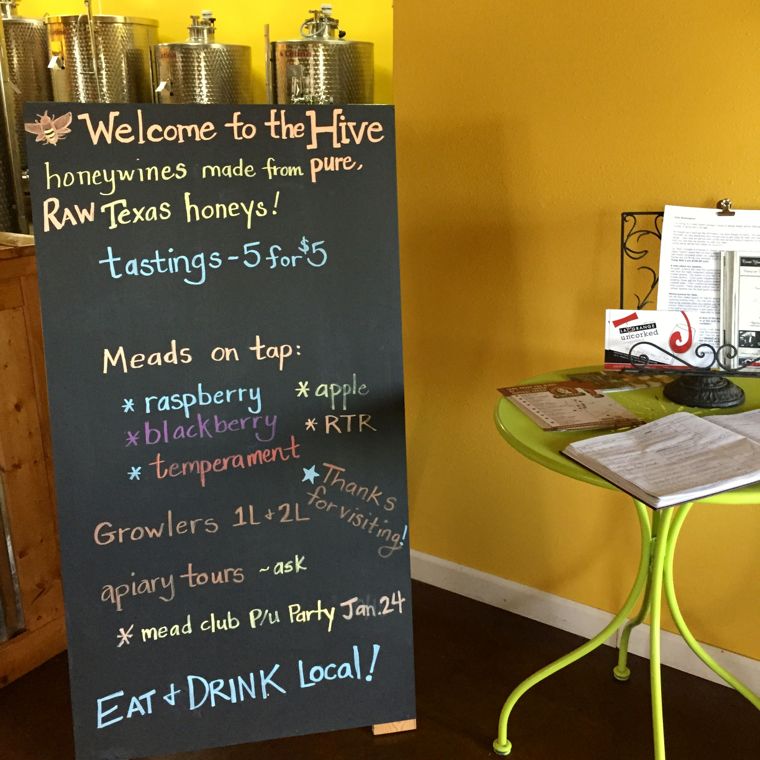 Welcome to the Hive
honeywines made from pure,
Raw Texas honeys!
tastings - 5 for $5
Meads on tap:
* raspberry * apple
* blackberry * RTR
* temperament
Thanks
for visiting!
Growlers 1L + 2L
apiary tours ~ ask
* mead club P/u Party Jan. 24
EAT + DRINK Local!
uncorked